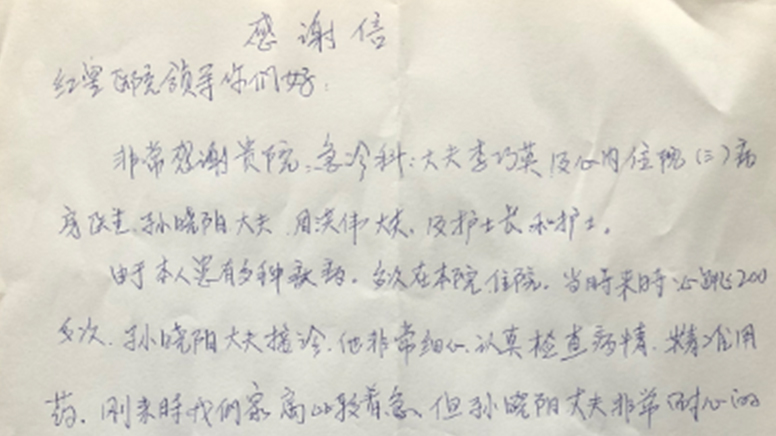 感谢信
红星医院领导你们好:
非常感谢贵院:急诊科:大夫李巧英及心内住院(三)病
房医生孙晓阳大夫 周洪伟大夫,及护士长和护士。
由于本人患有多种疾病,多次在本院住院,当时来时心跳200
多次,孙晓阳大夫接诊,他非常细心,认真检查病情,精准用
药,刚来时我们家属比较着急、但孙晓阳大夫非常耐心的